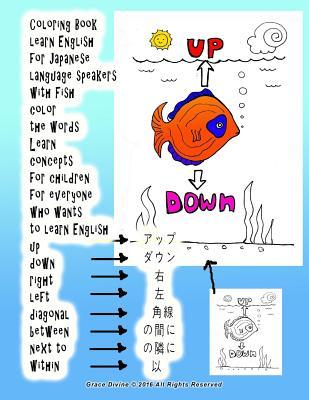 Coloring Book
Learn English
For Japanese
Language Speakers
With Fish
Color
the Words
Learn
Concepts
For Children
For everyone
Who Wants
to Learn English
up
down
right
left
diagonal
between
next to
within
アップ
ダウン
右
左
角線
の間に
の隣に
以
UP
DOWN
UP
DOWN
Grace Divine © 2016 All Rights Reserved